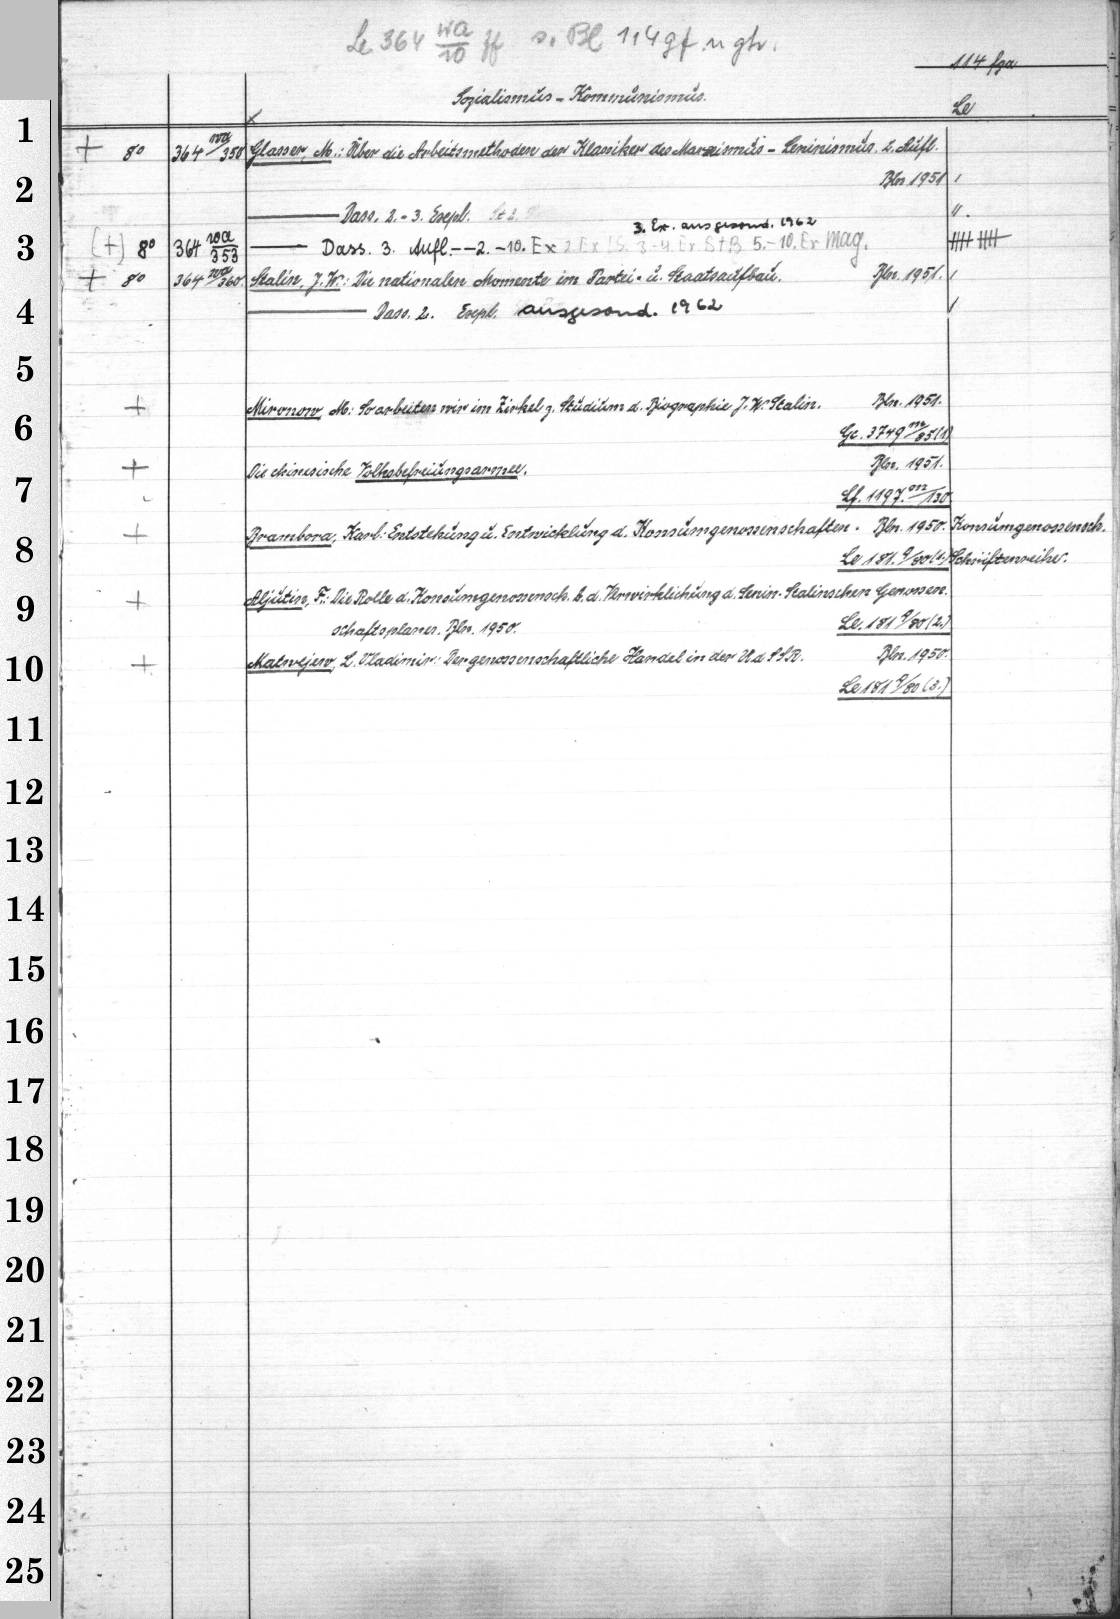 Le 364 wa/10 ff s. Bl 114gf.
114 fga
Sozialismus - Kommunismus.
Le
1
+ 8° 364 wa/350 Glasser, M.: Über die Arbeitsmethoden der Klassiker des Marxismus - Leninismus. 2. Aufl.
2
Bln 1951
Dass. 2.-3. Expl.
3. Ex. ausgesond. 1962
3
(+) 8° 364 wa/353 Dass. 3. Aufl. -- 2. -10. Ex 2. Ex LS. 3-4. Ex StB 5.-10. Ex Mag.
+ 8° 364 wa/360. Stalin, J. W.: Die nationalen Momente im Partei- u. Staatsaufbau. Bln. 1951.
4
Dass. 2. Expl. ausgesond. 1962
5
+ Mironow, M.: So arbeiten wir im Zirkel z. Studium d. Biographie J. W. Stalin. Bln. 1951.
6
Gc. 3749 m/85(1)
+ Die chinesische Volksbefreiungsarmee. Bln. 1951.
7
Lf. 1197. m/130
+ Brambora, Karl: Entstehung u. Entwicklung d. Konsumgenossenschaften. Bln. 1950. Konsumgenossensch.
8
Le 181. q/80(1.) Schriftenreihe.
+ Aljutin, F.: Die Rolle d. Konsumgenossensch. b. d. Verwirklichung d. Lenin-Stalinschen Genossen-
9
schaftsplanes. Bln. 1950. Le. 181 q/80(2.)
+ Matwejew, L. Vladimir: Der genossenschaftliche Handel in der UdSSR. Bln. 1950.
10
Le 181 q/80(3.)
11
12
13
14
15
16
17
18
19
20
21
22
23
24
25